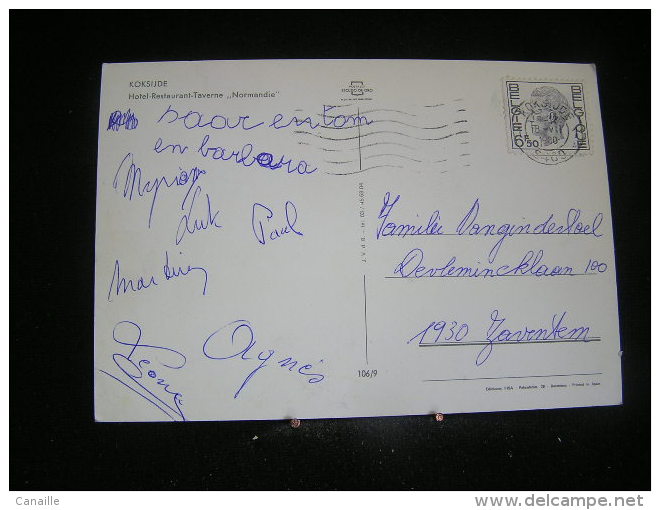 KOKSIJDE
Hotel-Restaurant-Taverne „Normandie"
saar en tom
en barbara
Myriam
Luk Paul
Martine
Agnès
Leona
106/9
BELGIË BELGIQUE
6F50
KOKSIJDE
Familie Vanginderdael
Devlemincklaan 100
1930 Zaventem
Canaille
delcampe.net